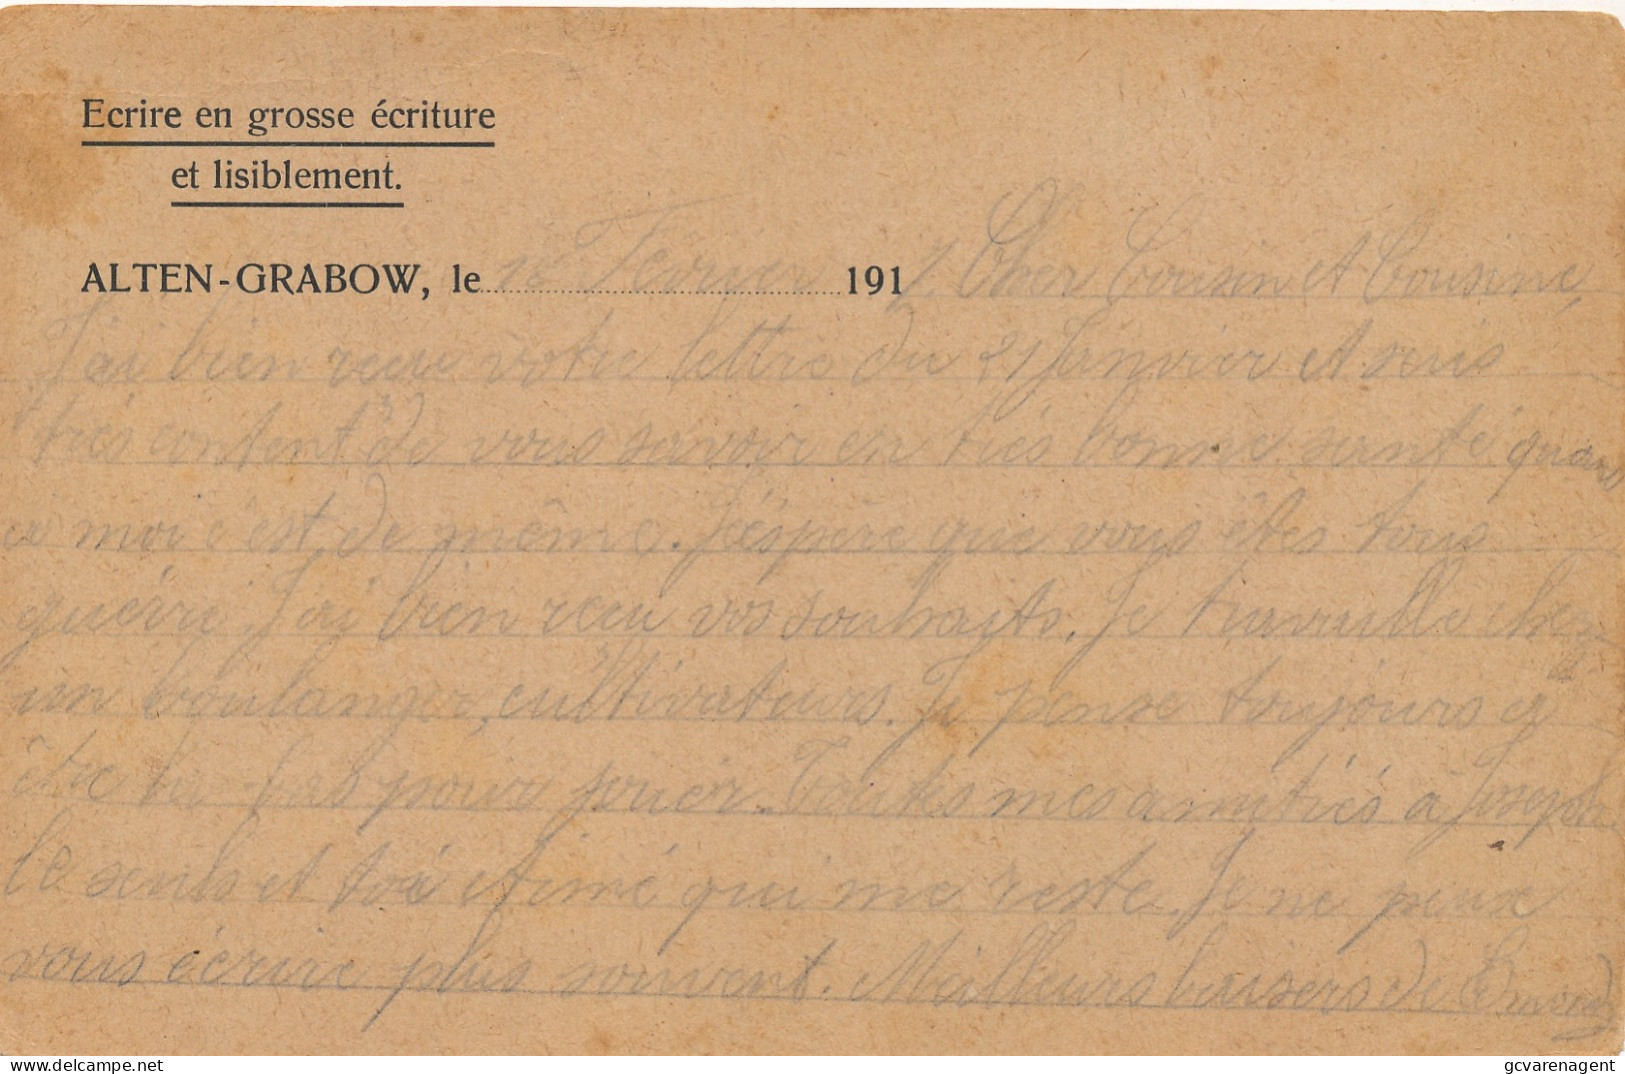 Ecrire en grosse écriture
et lisiblement.
ALTEN-GRABOW, le 12 Février 1917. Cher Cousin et Cousine,
J'ai bien reçu votre lettre du 21 Janvier et suis
très content de vous savoir en très bonne santé quand
a moi c'est de même. J'éspère que vous êtes tous
guérri. J'ai bien reçu vos souhaits. Je travaille chez
un boulanger, cultivateurs. Je pense toujours
être là-bas pour jouer. Toutes mes amitiés a Joseph
le seuls et toi et aimé qui me reste. Je ne peux
vous écrire plus souvent. Meilleurs baisers de
delcampe.net
gcvarenagent